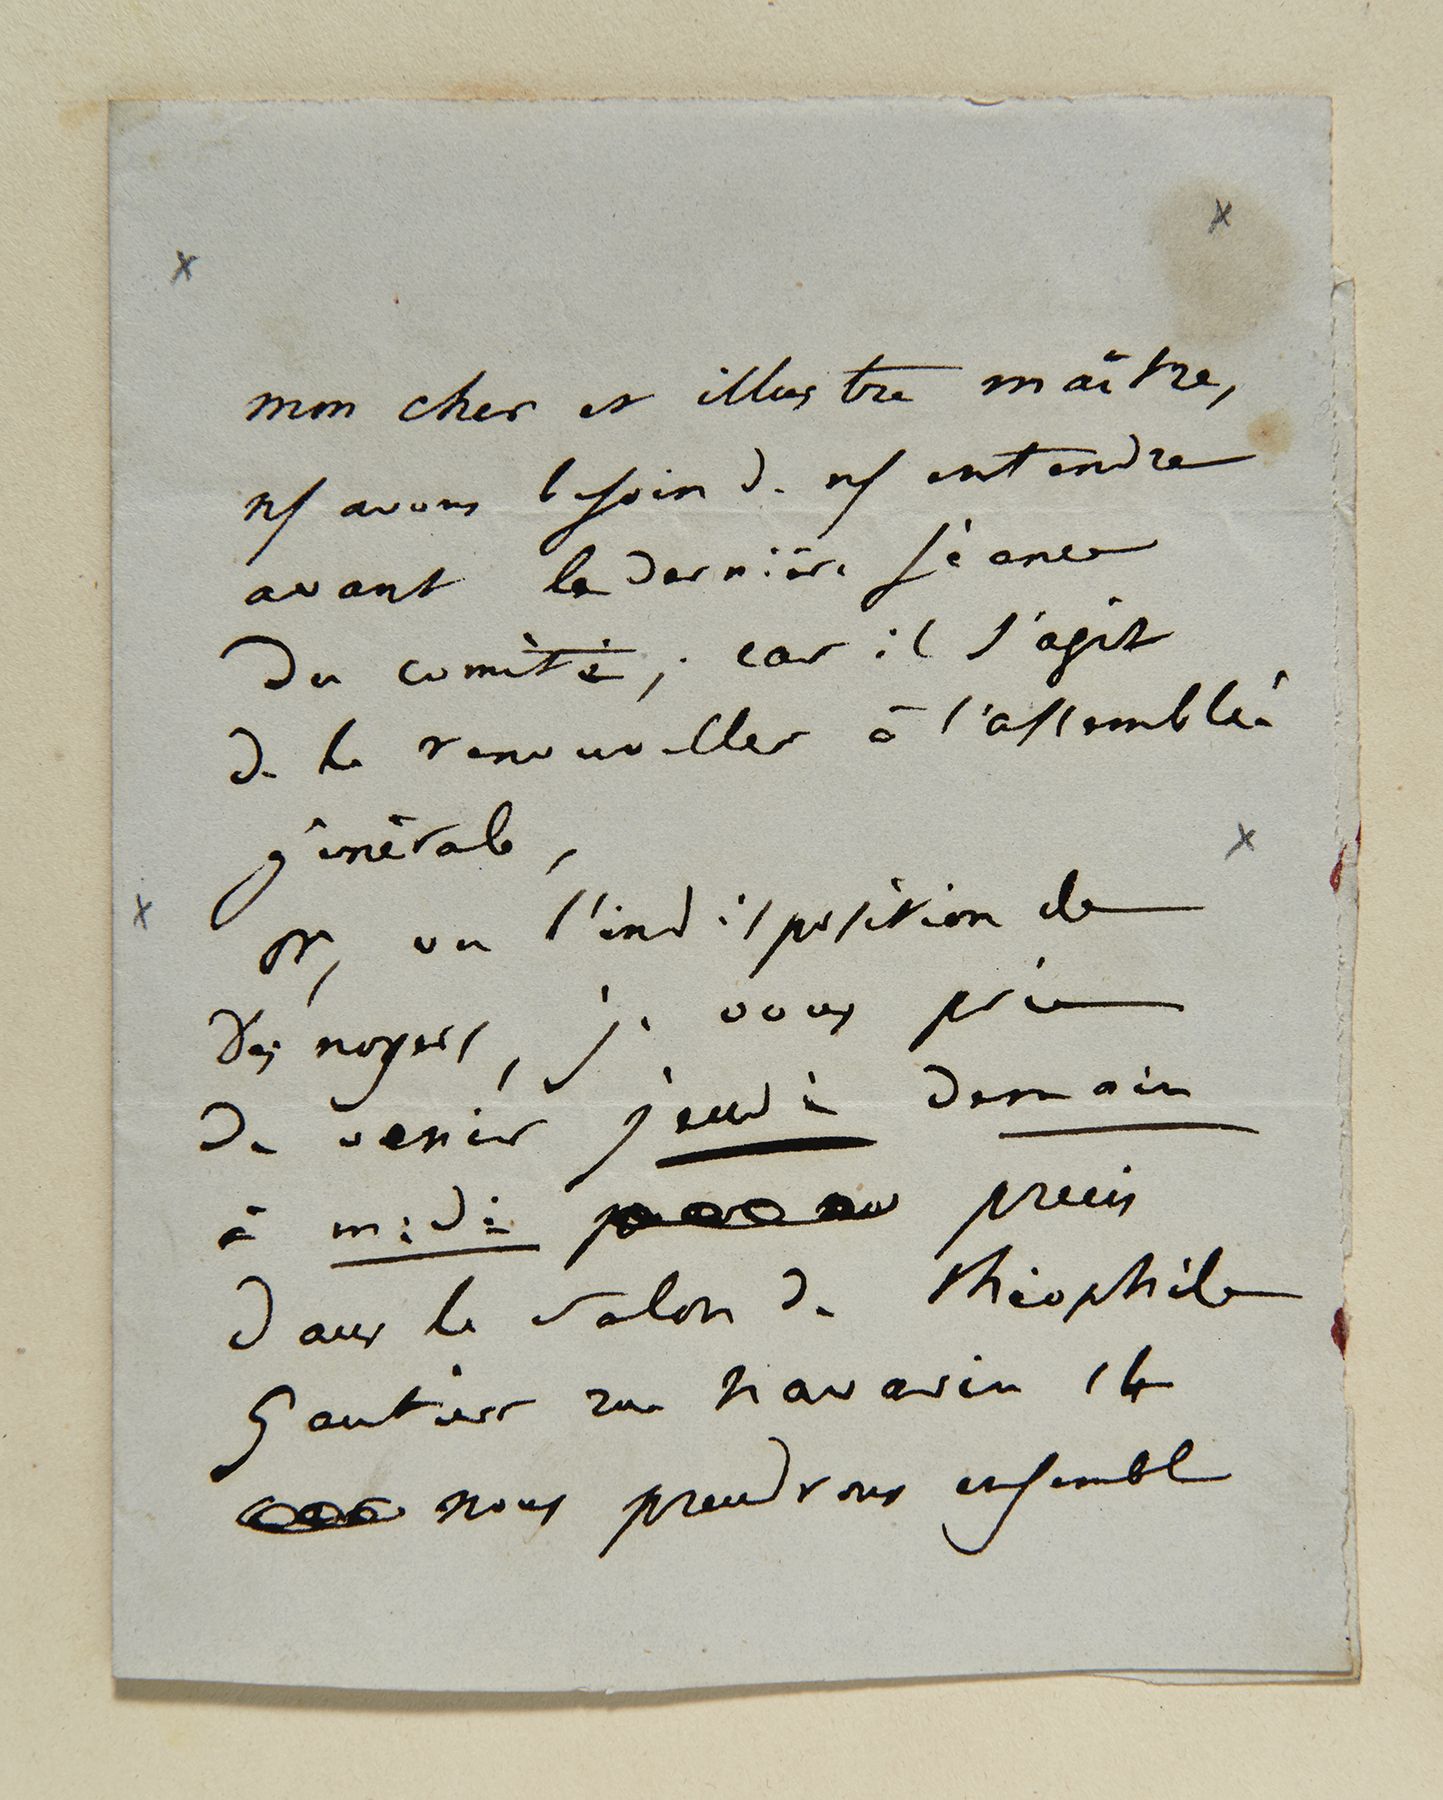 mon cher et illustre maître,
ns avons besoin de ns entendre
avant la dernière séance
du comité, car il s'agit
de le renouveller à l'assemblée
générale,
or, vu l'indisposition de
Desnoyers, je vous prie
de venir jeudi demain
à midi precis
dans le salon de Théophile
Gautier rue navarin 14
nous prendrons ensemble